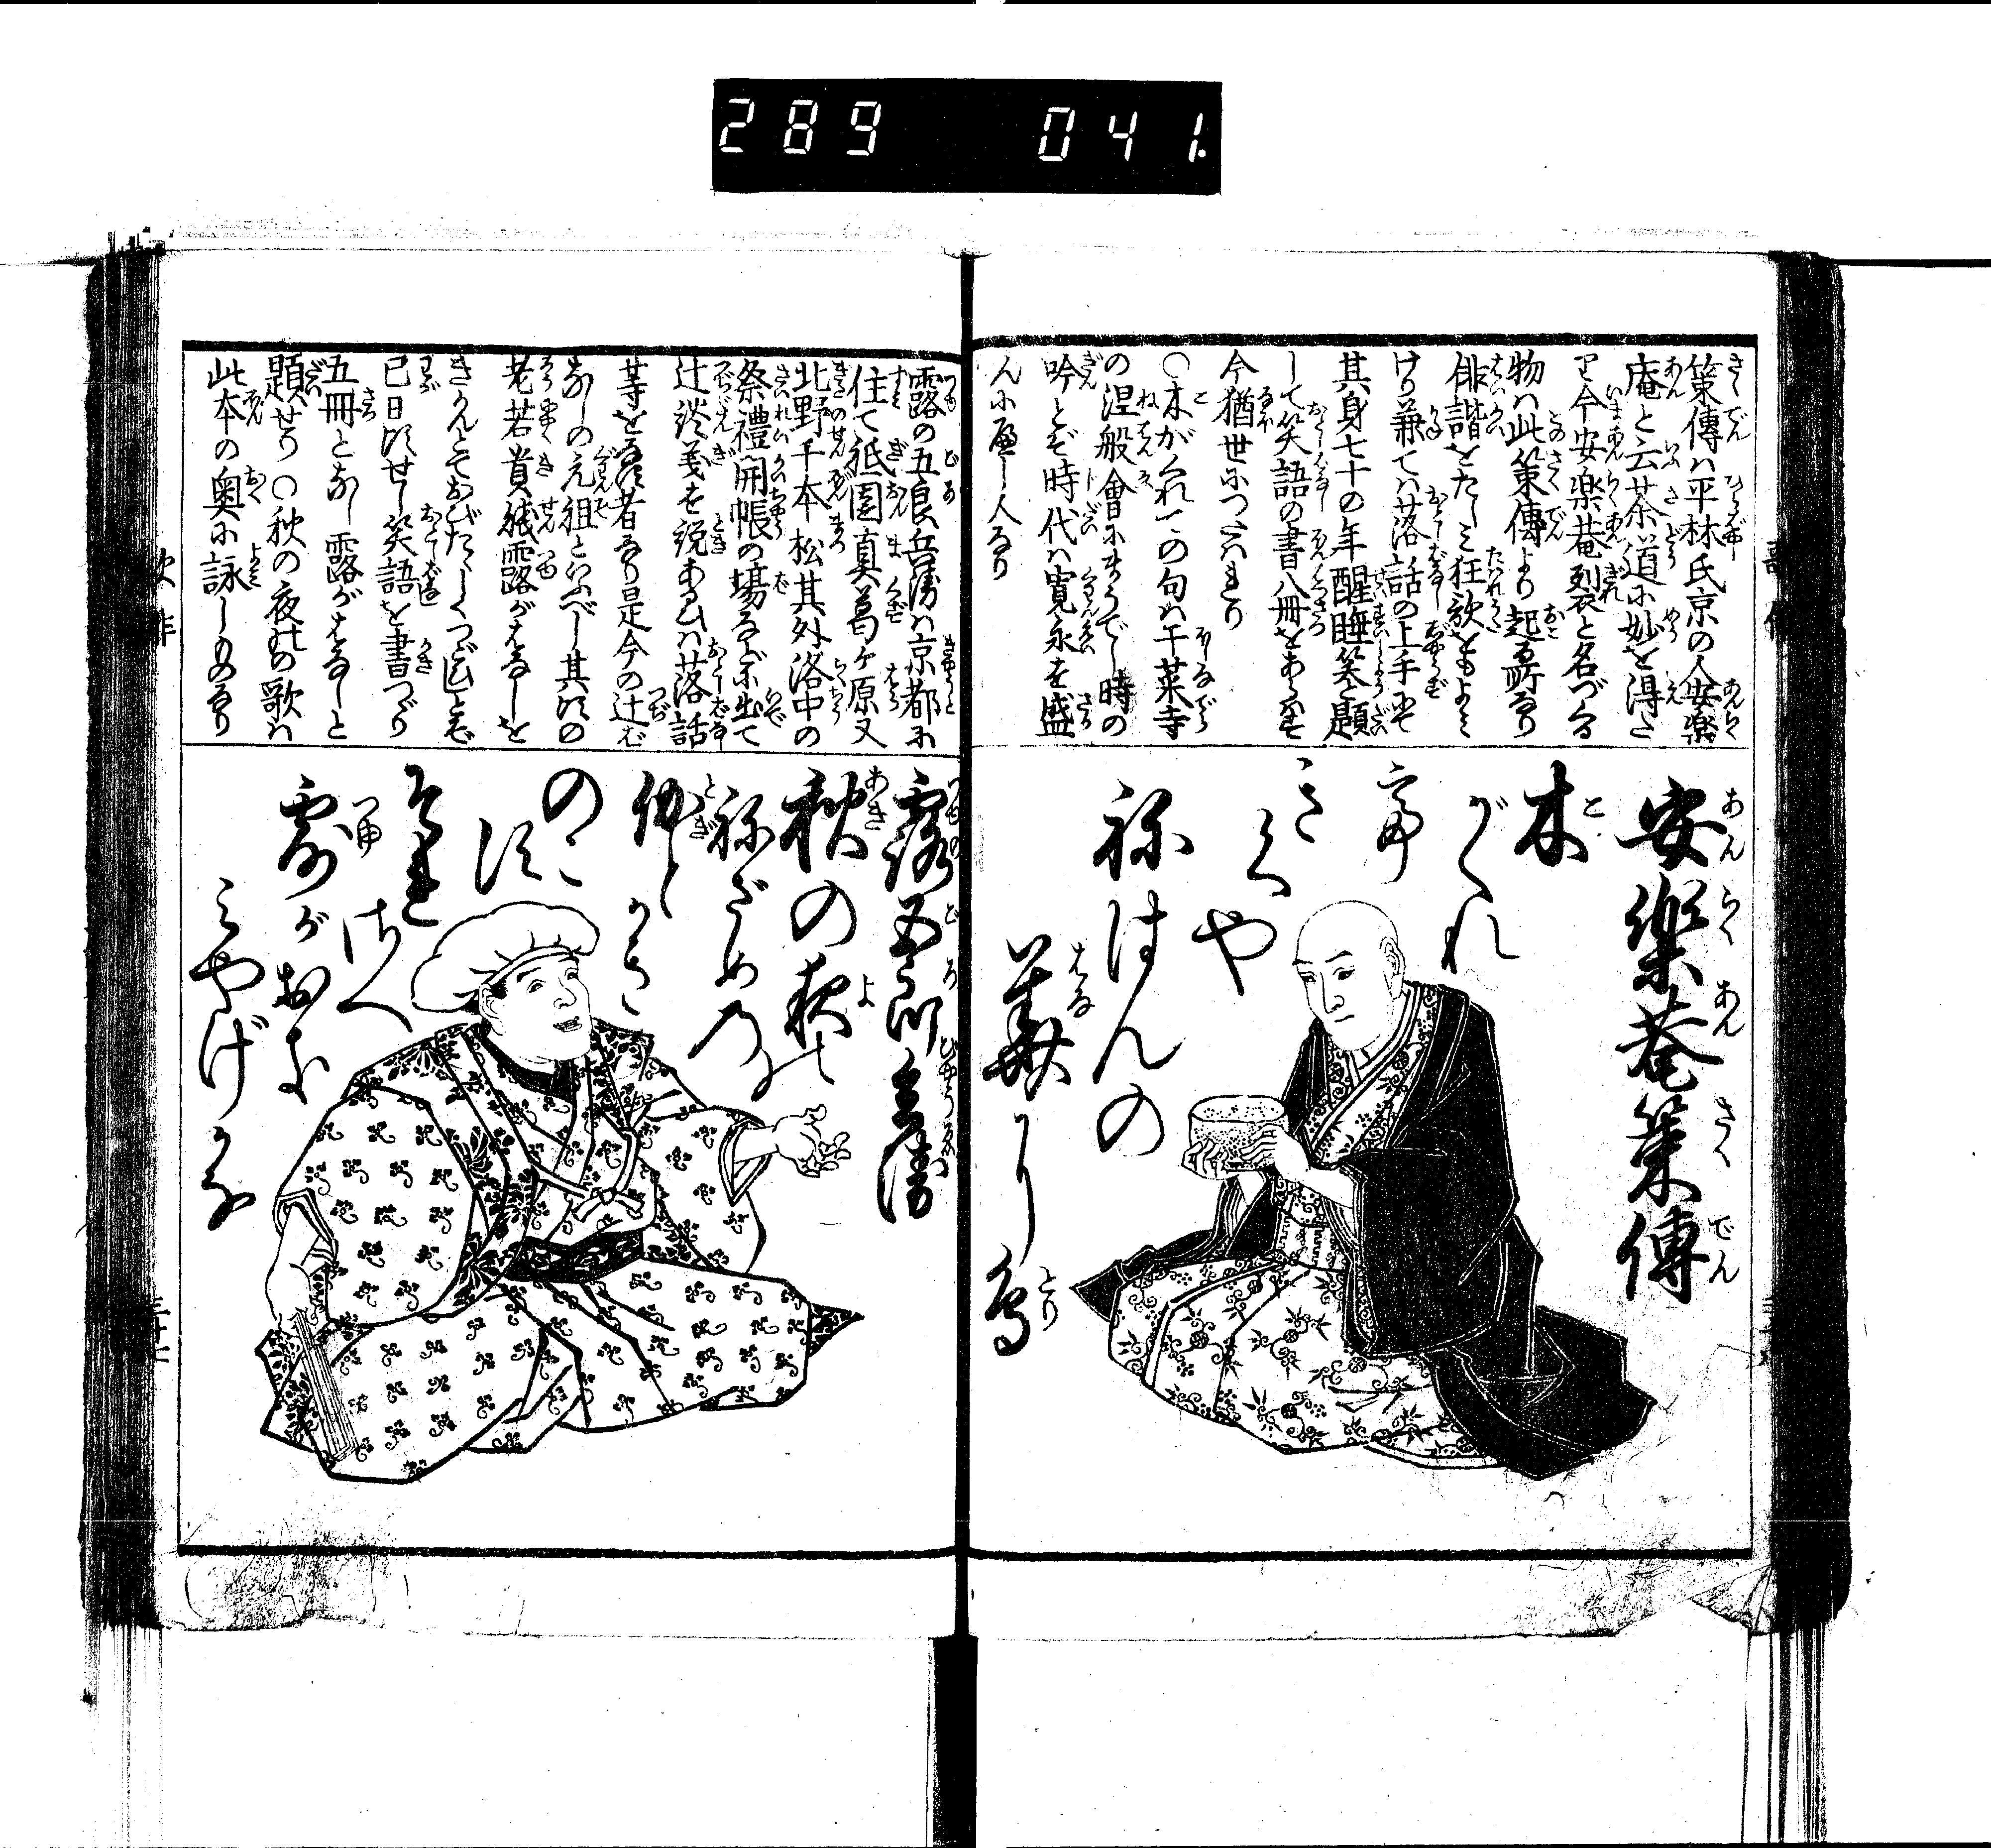 289 041.
策傳ハ平林氏京の人安樂
庵と云茶道に妙を得た
り今安楽菴裂と名づくる
物ハ此策傳より起る所なり
俳諧をたしミ狂歌をもよミ
けり兼てハ落話の上手にて
其身七十の年醒睡笑と題
して笑語の書八冊をあらはす
今猶世につたハれり
○木がくれての句ハ干菜寺
の涅般會にまうでし時の
吟とぞ時代ハ寛永を盛
んに歴し人なり
安樂菴策傳
木
がくれ
て
きくや
ねはんの
華
鳥
露の五良兵衛ハ京都に
住て祗園真葛ヶ原又
北野千本松其外洛中の
祭禮開帳の場などに出て
辻談義を説あるひハ落話
等をなす者なり是今の辻ば
なしの元祖といふべし其頃の
老若貴賤露がはなしを
きかんとておびたゝしくつどひしとぞ
已日頃せし笑語を書つゞり
五冊となし露がはなしと
題せり○秋の夜はの歌ハ
此本の奥に詠しものなり
露五郎兵衛
秋の夜の
ねざめの
伽と
かき
のこ
す
それ
さへ
露が
おかし
みやげ
かな